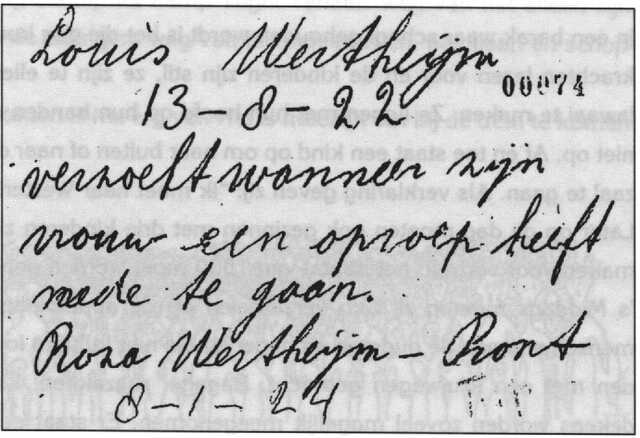 Louis Wertheijm
00074
13-8-22
verzoekt wanneer zijn
vrouw een oproep heeft
mede te gaan.
Roza Wertheijm - Ront
8-1-24